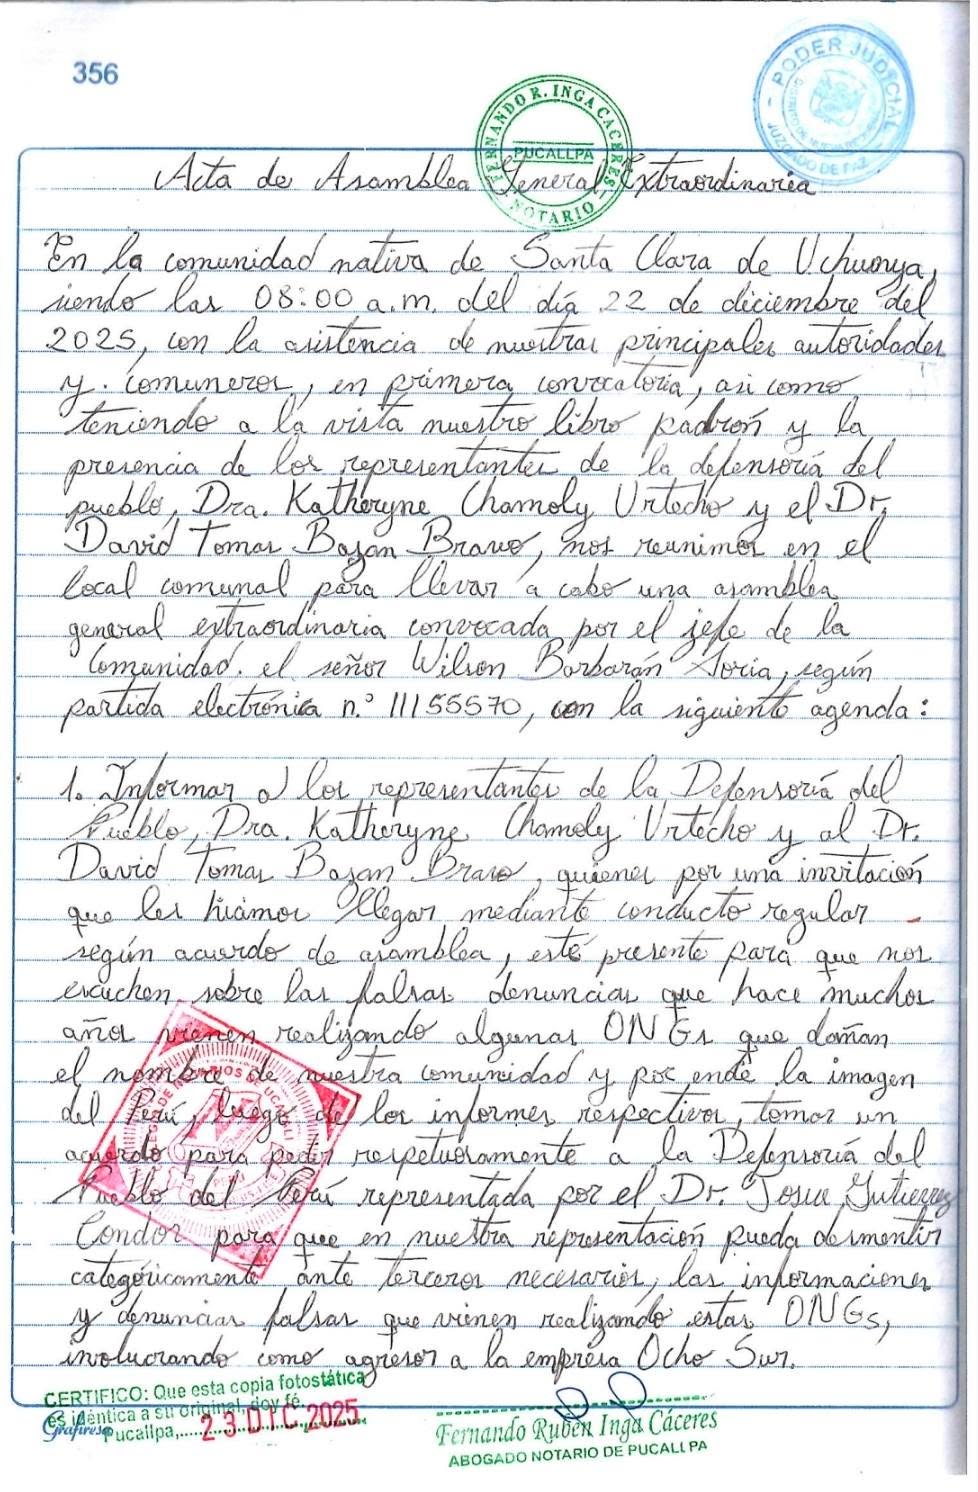 356
PODER JUDICIAL
JUZGADO DE PAZ
FERNANDO R. INGA CACERES
PUCALLPA
NOTARIO
Acta de Asamblea General Extraordinaria
En la comunidad nativa de Santa Clara de Uchunya,
siendo las 08:00 a.m. del día 22 de diciembre del
2025, con la asistencia de nuestras principales autoridades
y comuneros, en primera convocatoria, asi como
teniendo a la vista nuestro libro padrón y la
presencia de los representantes de la defensoría del
pueblo, Dra. Katheryne Chamoly Urtecho y el Dr.
David Tomas Bazan Bravo, nos reunimos en el
local comunal para llevar a cabo una asamblea
general extraordinaria convocada por el jefe de la
Comunidad. el señor Wilson Barbarán Soria, según
partida electrónica n.° 11155570, con la siguiente agenda:
1. Informar a los representantes de la Defensoría del
Pueblo, Dra. Katheryne Chamoly Urtecho y al Dr.
David Tomas Bazan Bravo, quienes por una invitación
que les hicimos llegar mediante conducto regular
según acuerdo de asamblea, esté presente para que nos
escuchen sobre las falsas denuncias que hace muchos
años vienen realizando algunas ONGs que dañan
el nombre de nuestra comunidad y por ende la imagen
del Perú, luego de los informes respectivos, tomar un
acuerdo para pedir respetuosamente a la Defensoría del
Pueblo del Perú representada por el Dr. Josue Gutierrez
Condor para que en nuestra representación pueda desmentir
categóricamente ante terceros necesarios, las informaciones
y denuncias falsas que vienen realizando estas ONGs,
involucrando como agresor a la empresa Ocho Sur.
CERTIFICO: Que esta copia fotostática
es idéntica a su original, doy fé.
Pucallpa, 23 DIC 2025
Grafiresa
Fernando Rubén Inga Cáceres
ABOGADO NOTARIO DE PUCALLPA